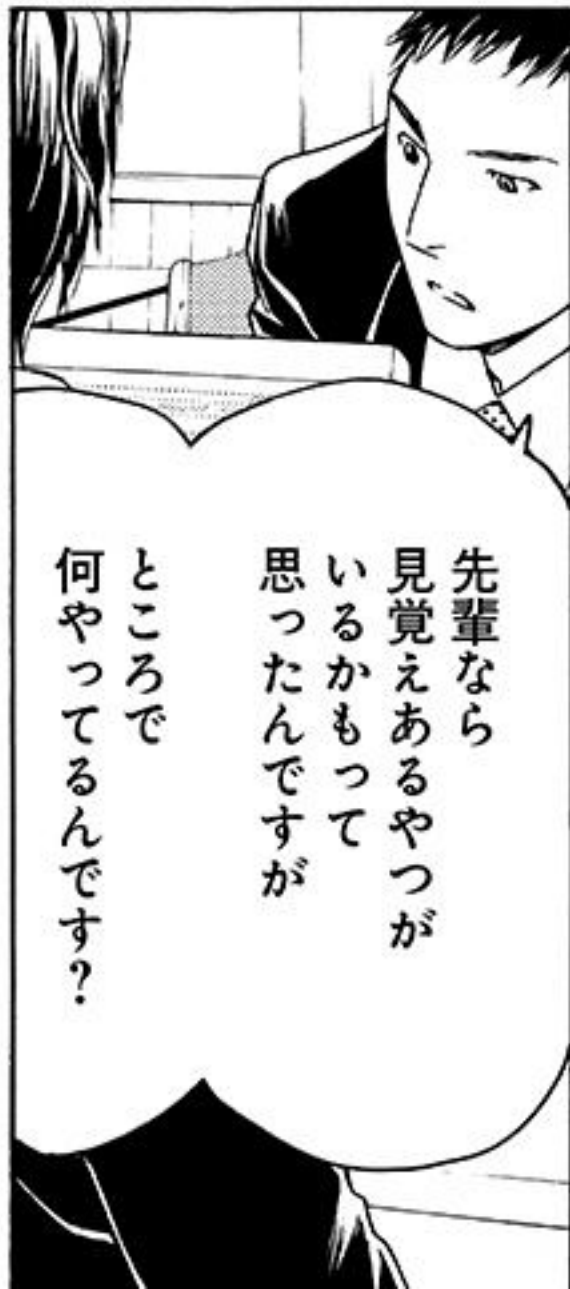 先輩なら
見覚えあるやつが
いるかもって
思ったんですが
ところで
何やってるんです？